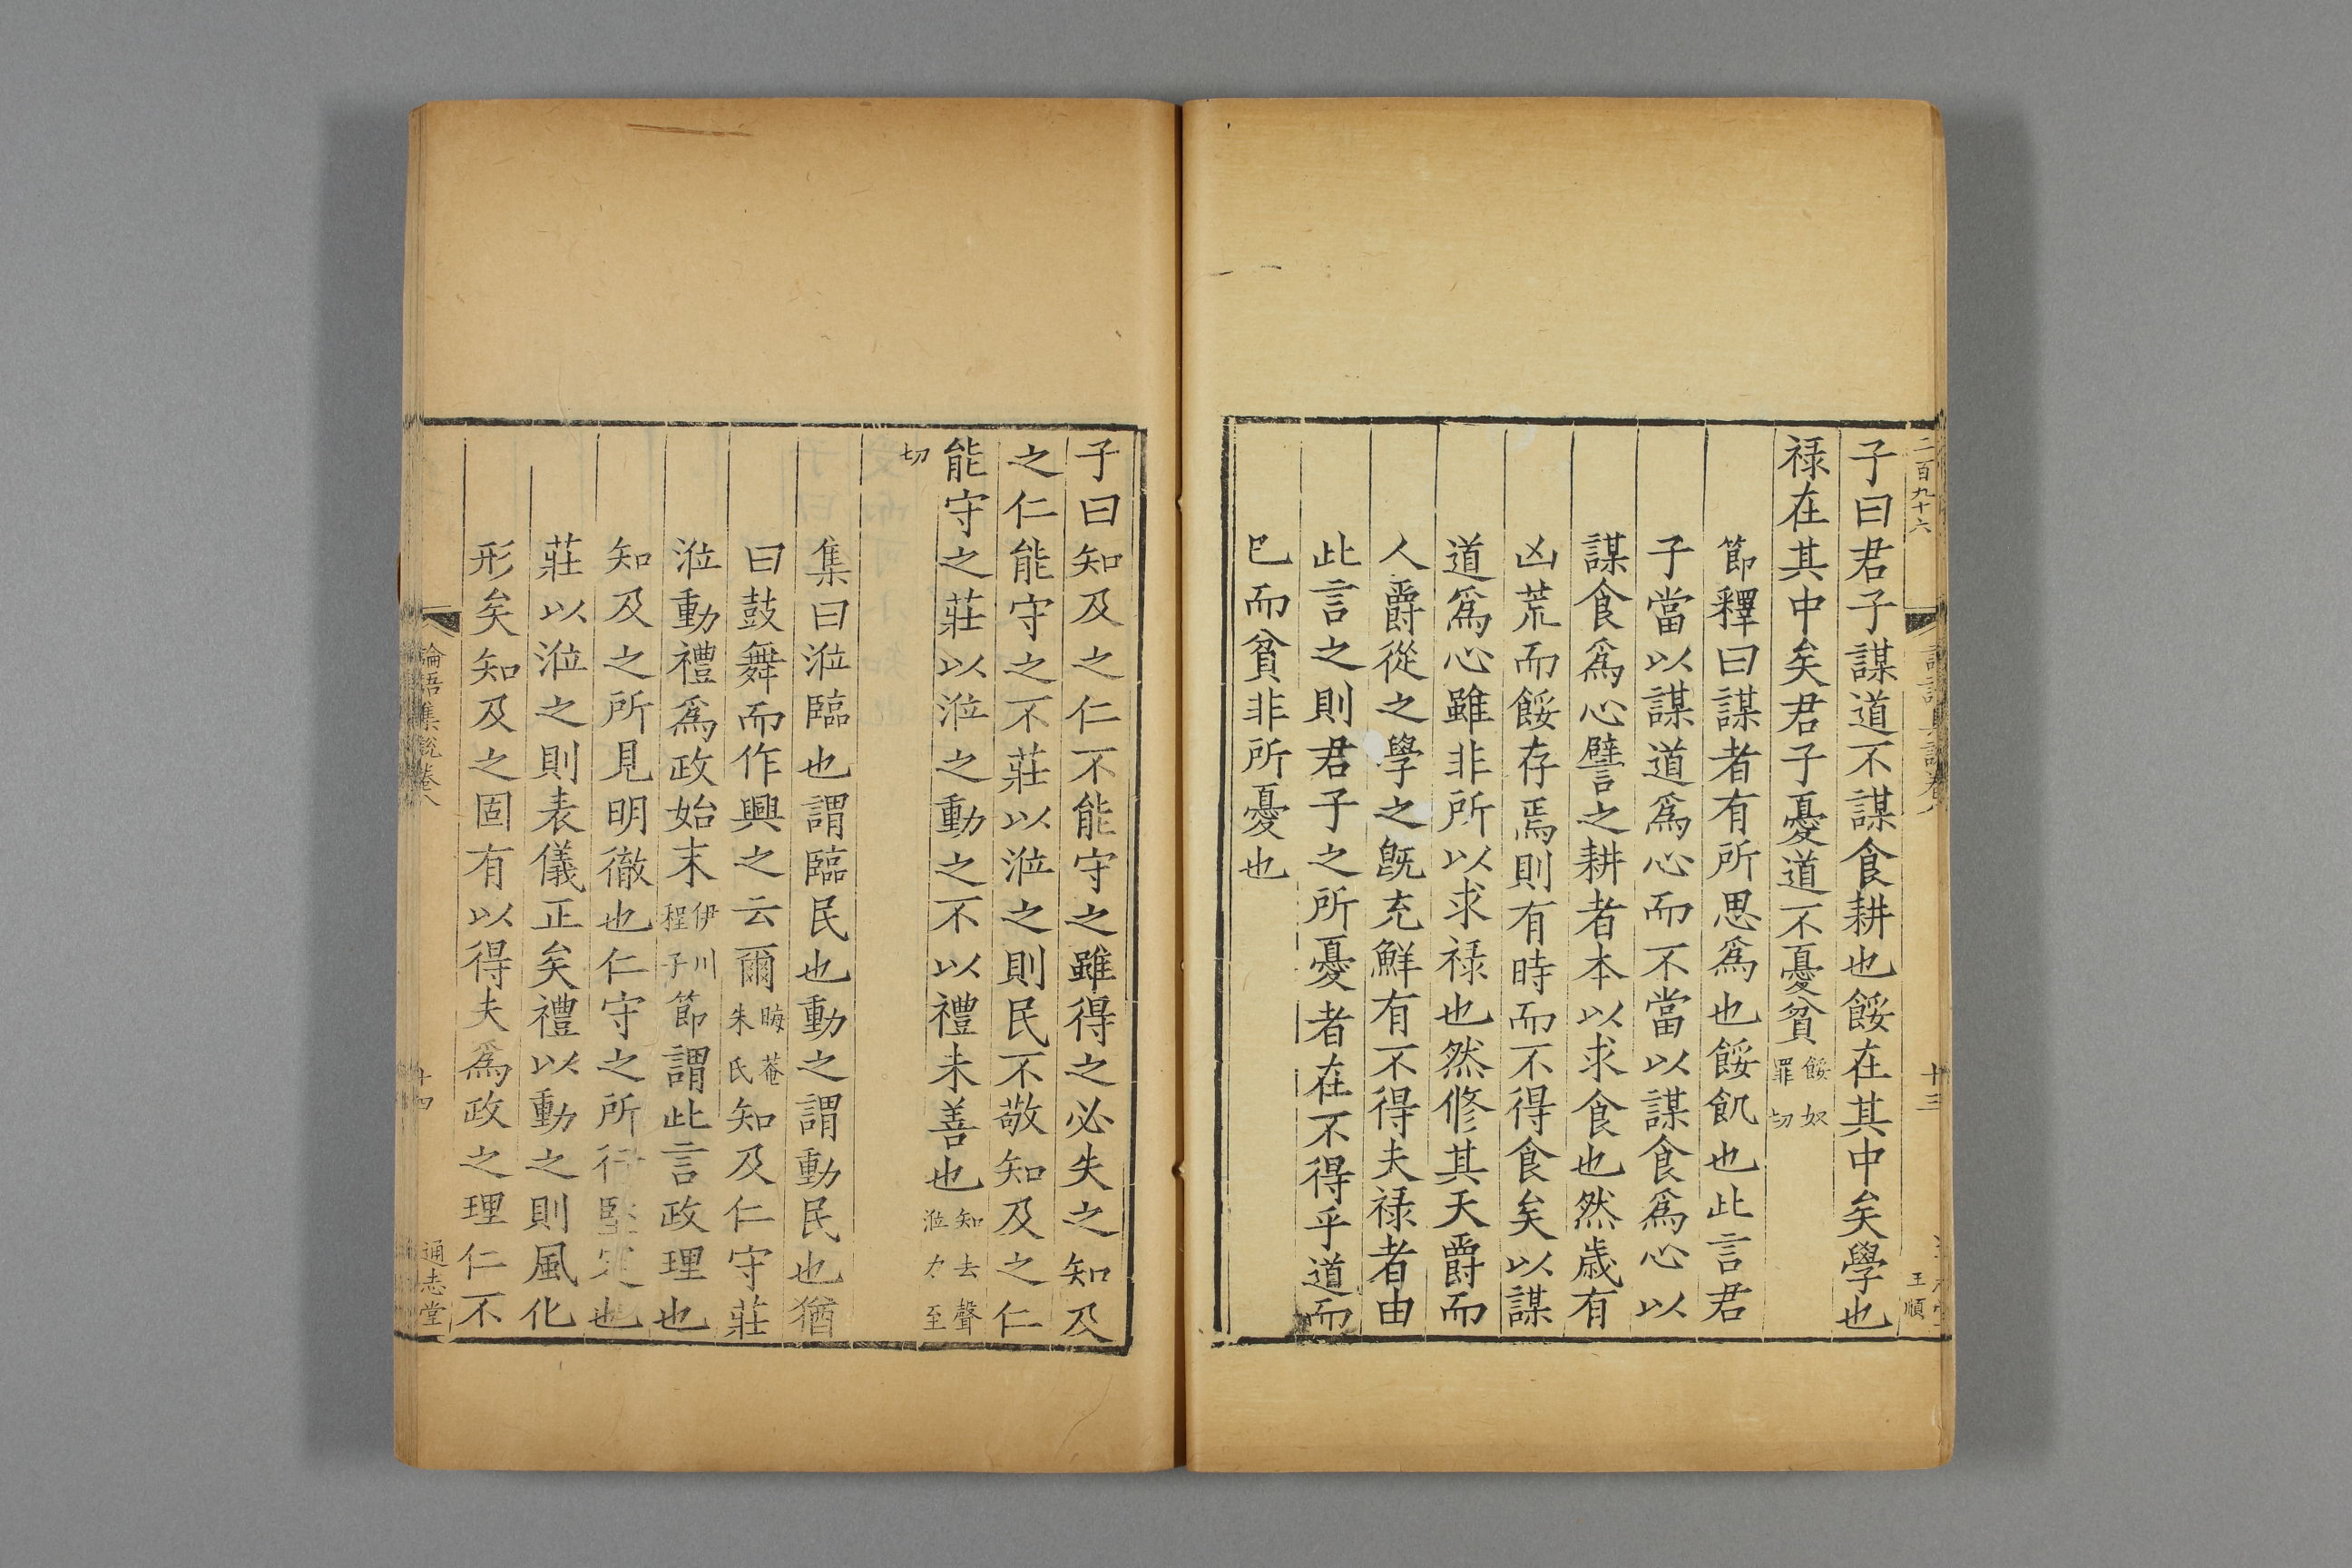 二百九十六
十三
王順
子曰君子謀道不謀食耕也餒在其中矣學也
祿在其中矣君子憂道不憂貧餒奴罪切
節釋曰謀者有所思爲也餒飢也此言君
子當以謀道爲心而不當以謀食爲心以
謀食爲心譬之耕者本以求食也然歲有
凶荒而餒存焉則有時而不得食矣以謀
道爲心雖非所以求祿也然修其天爵而
人爵從之學之旣充鮮有不得夫祿者由
此言之則君子之所憂者在不得乎道而
已而貧非所憂也
子曰知及之仁不能守之雖得之必失之知及
之仁能守之不莊以涖之則民不敬知及之仁
能守之莊以涖之動之不以禮未善也知去聲涖力至
切
集曰涖臨也謂臨民也動之謂動民也猶
曰鼓舞而作興之云爾晦菴朱氏知及仁守莊
涖動禮爲政始末伊川程子節謂此言政理也
知及之所見明徹也仁守之所行堅定也
莊以涖之則表儀正矣禮以動之則風化
形矣知及之固有以得夫爲政之理仁不
論語集說卷八
十四
通志堂